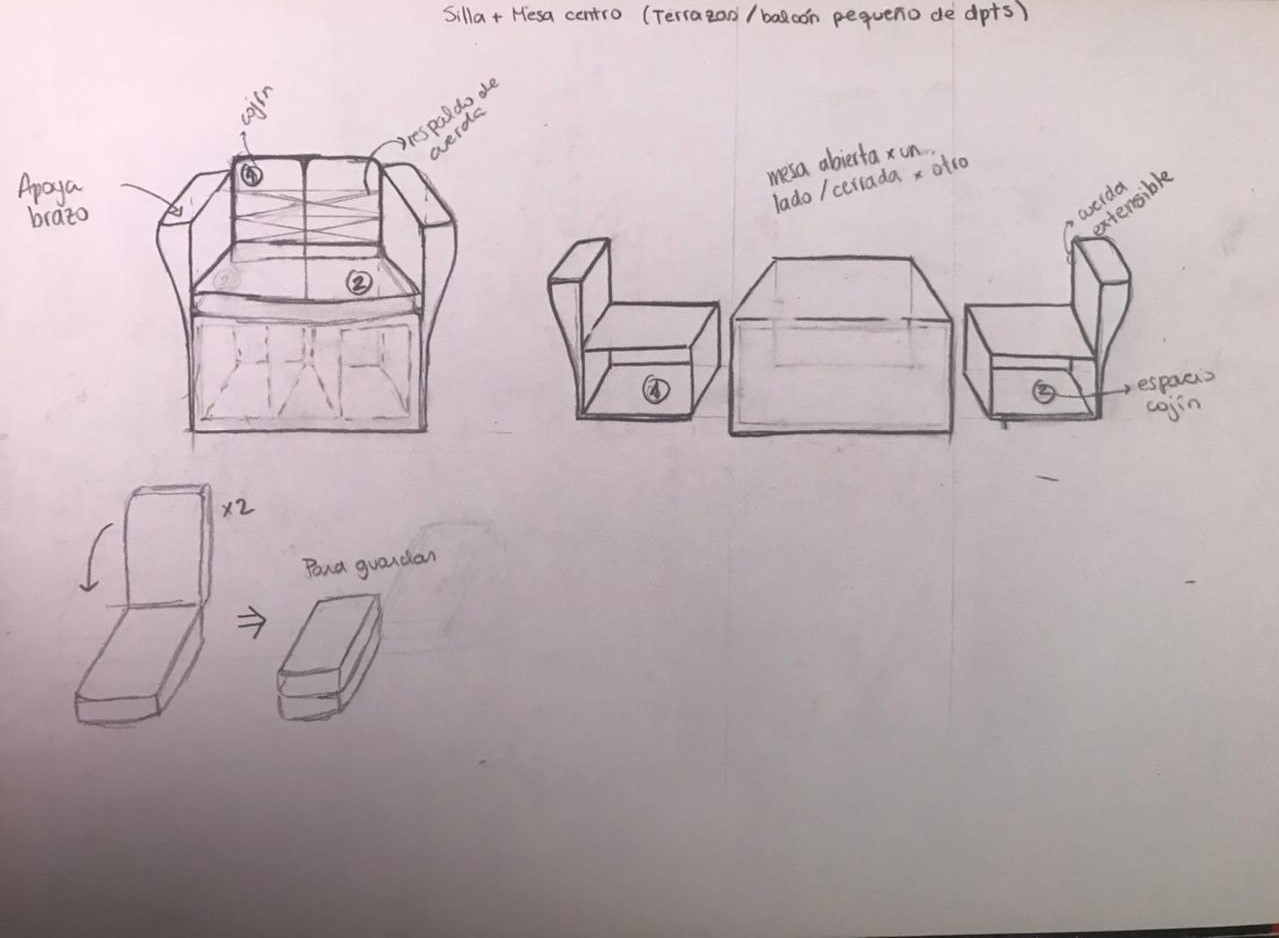 Silla + Mesa centro (Terrazas/balcón pequeño de dpts)
cojín
respaldo de
cuerda
Apoya
brazo
1
2
2
mesa abierta x un
lado / cerrada x otro
cuerda
extensible
1
2
espacio
cojín
x2
Para guardar